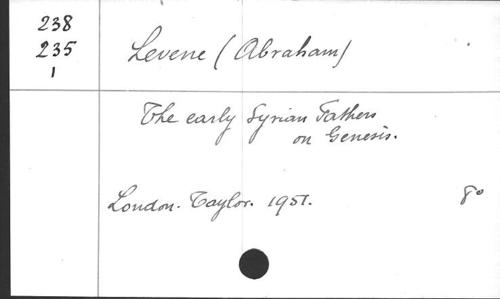 238
235
1
Levene (Abraham)
The early Syrian Fathers
on Genesis.
London. Taylor. 1951. 8°